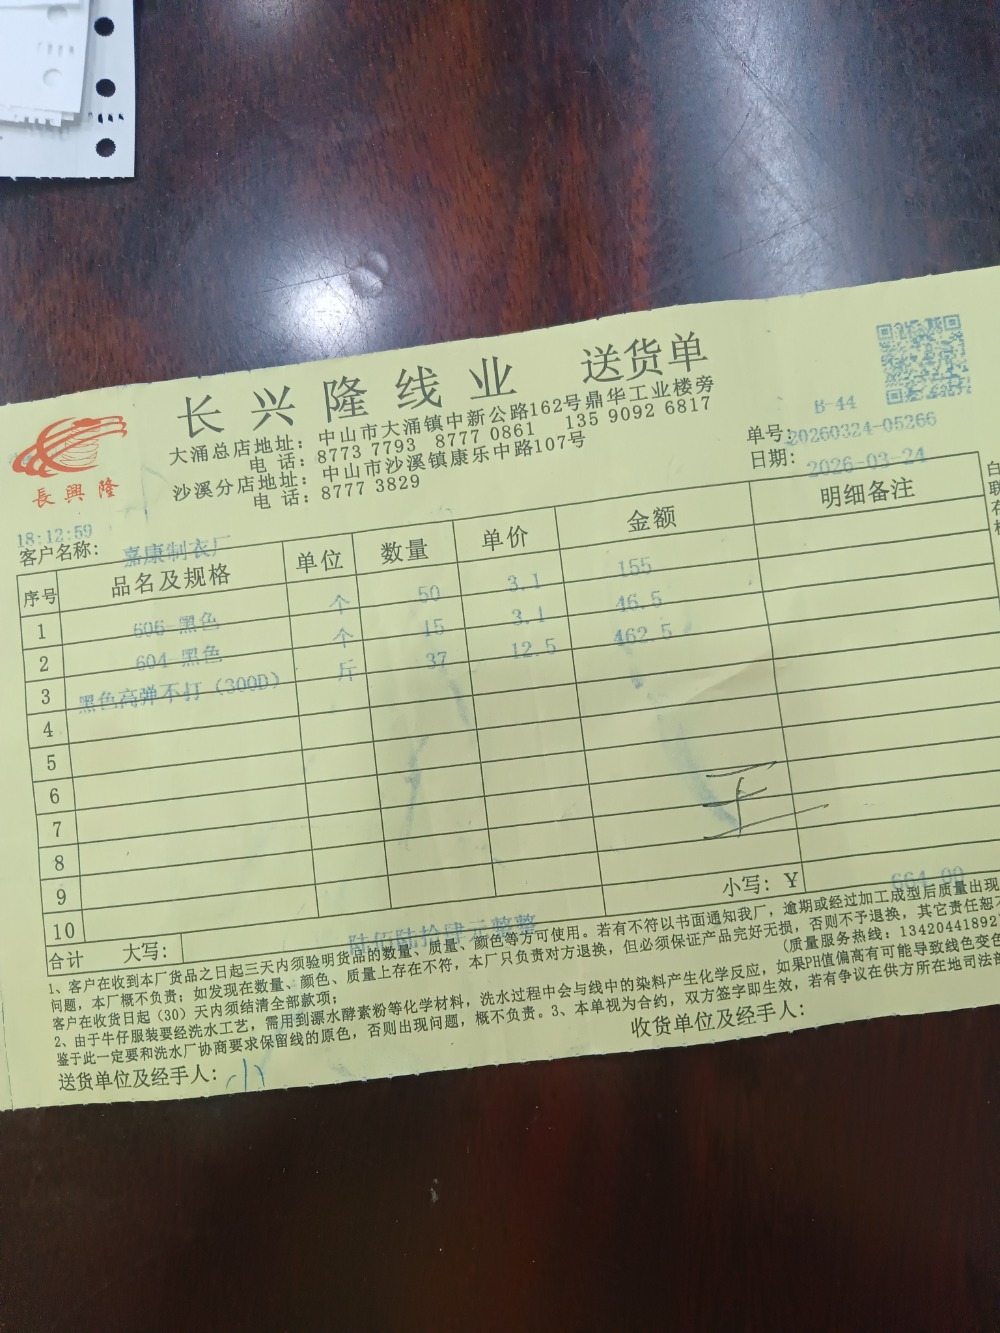 长兴隆线业 送货单
大涌总店地址：中山市大涌镇中新公路162号鼎华工业楼旁
电 话：8773 7793 8777 0861 135 9092 6817
沙溪分店地址：中山市沙溪镇康乐中路107号
电 话：8777 3829
長興隆
B-44
单号：20260324-05266
日期：2026-03-24
18:12:59
客户名称：嘉康制衣厂
序号 品名及规格 单位 数量 单价 金额 明细备注
1 606 黑色 个 50 3.1 155
2 604 黑色 个 15 3.1 46.5
3 黑色高弹不打（300D） 斤 37 12.5 462.5
4
5
6
7
8
9
10
合计 大写：陆佰陆拾肆元 小写：Y 664.00
1、客户在收到本厂货品之日起三天内须验明货品的数量、质量、颜色等方可使用。若有不符以书面通知我厂，逾期或经过加工成型后质量出现
问题，本厂概不负责；如发现在数量、颜色、质量上存在不符，本厂只负责对方退换，但必须保证产品完好无损，否则不予退换，其它责任恕不
客户在收货日起（30）天内须结清全部款项；（质量服务热线：1342044189
2、由于牛仔服装要经洗水工艺，需用到漂水酵素粉等化学材料，洗水过程中会与线中的染料产生化学反应，如果PH值偏高有可能导致线色变色
鉴于此一定要和洗水厂协商要求保留线的原色，否则出现问题，概不负责。3、本单视为合约，双方签字即生效，若有争议在供方所在地司法部
送货单位及经手人： 收货单位及经手人：
白
联
存